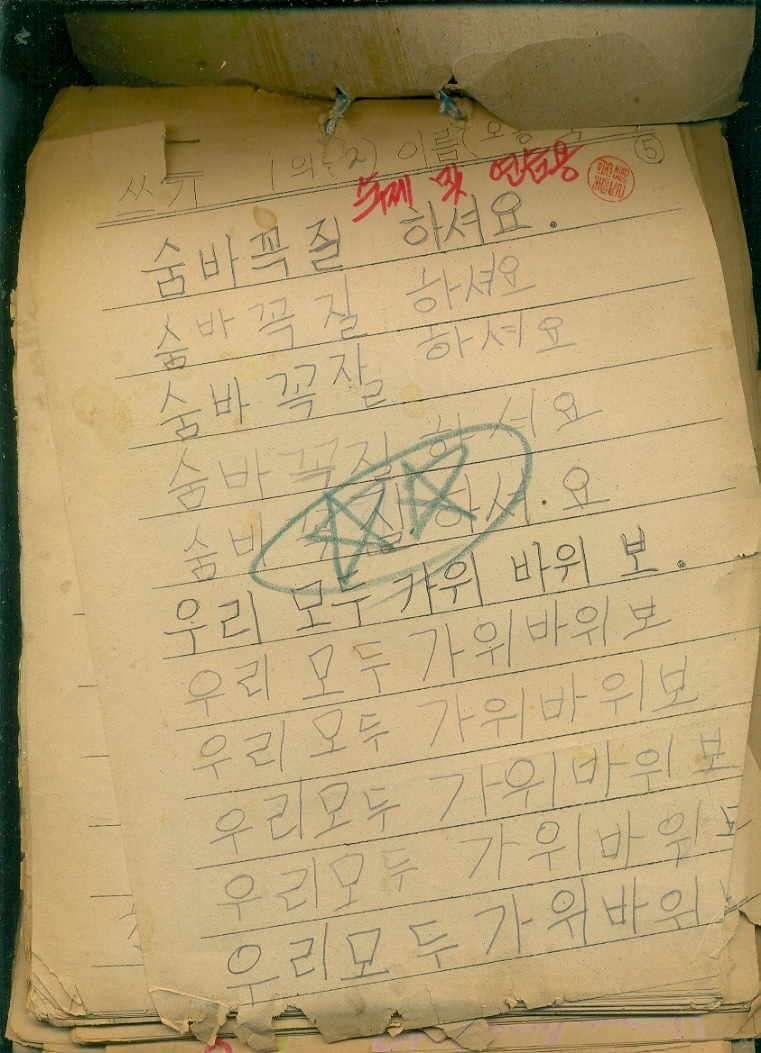 쓰기 1의(2) 이름(오 ⑤
숙제 및 연습용
숨바꼭질 하셔요.
숨바꼭질 하셔요
숨바꼭잘 하셔요
숨바꼭질 하셔요
숨바꼭질 하셔요
우리 모두 가위 바위 보.
우리 모두 가위바위보
우리 모두 가위바위보
우리모두 가위바위보
우리모두 가위바위보
우리모두 가위바위